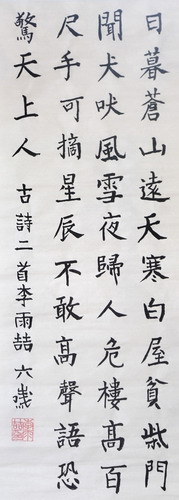 日暮蒼山遠天寒白屋貧柴門
聞犬吠風雪夜歸人危樓高百
尺手可摘星辰不敢高聲語恐
驚天上人 古詩二首李雨喆六歲